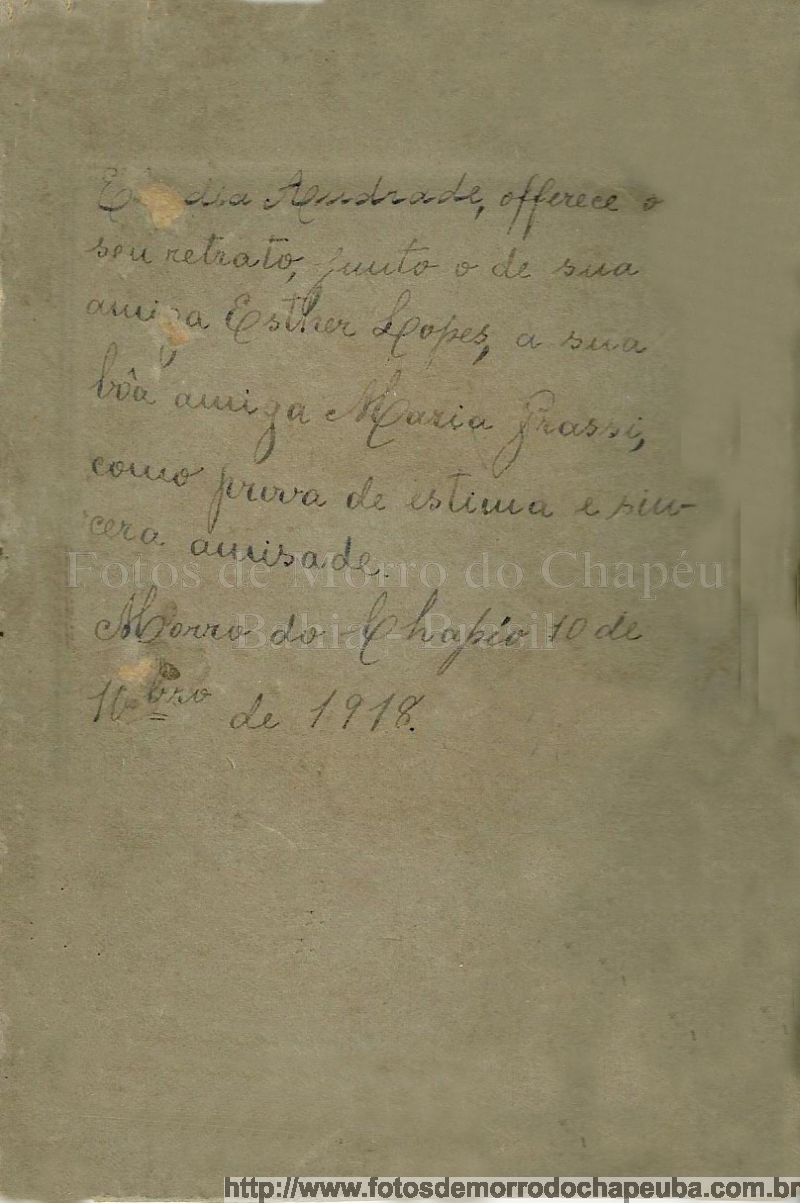 Andrade, offerece o
seu retrato, junto o de sua
amiga Esther Lopes, a sua
bôa amiga Maria Grassi,
como prova de estima e sin-
cera amisade.
Fotos de Morro do Chapéu
Morro do Chapéo 10 de
Bahia - Brasil
bro de 1918.
http://www.fotosdemorrodochapeuba.com.br